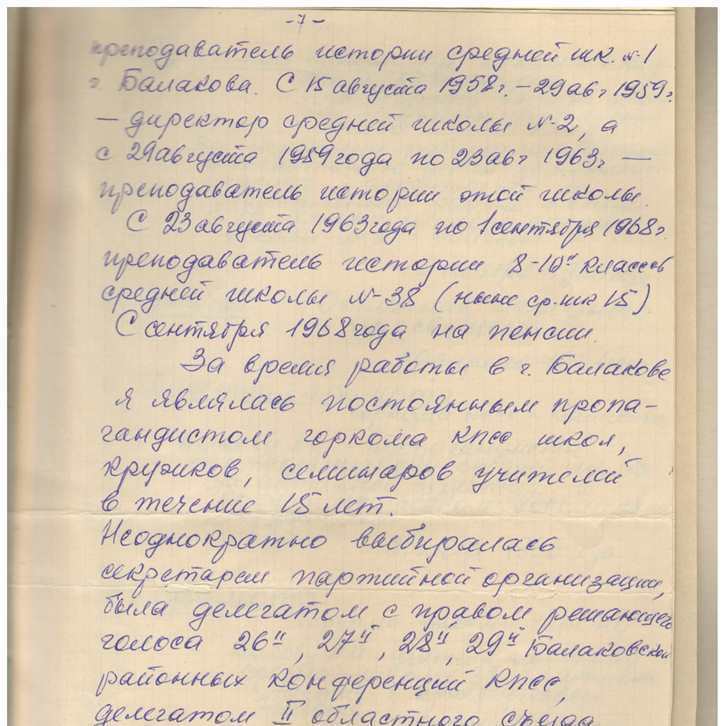 -7-
преподаватель истории средней шк. №1
г. Балакова. С 15 августа 1958г. – 29 авг 1959г.
– директор средней школы №2, а
с 29 августа 1959 года по 23 авг 1963г –
преподаватель истории этой школы.
С 23 августа 1963 года по 1 сентября 1968г.
преподаватель истории 8-10х классов
средней школы №38 (ныне ср. шк 15)
С сентября 1968 года на пенсии.
За время работы в г. Балакове
я являлась постоянным пропа-
гандистом горкома КПСС школ,
кружков, семинаров учителей
в течение 15 лет.
Неоднократно выбиралась
секретарем партийной организации,
была делегатом с правом решающего
голоса 26й, 27й, 28й, 29й Балаковской
районных конференций КПСС,
делегатом II областного съезда